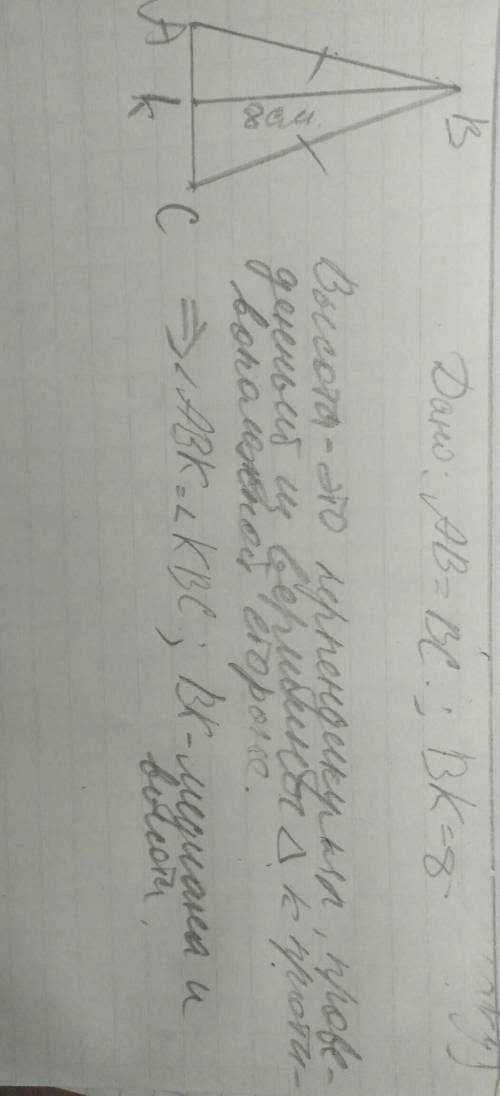 Дано: AB = BC; BK = 8
B
A
K
C
8 см.
Высота - это перпендикуляр, прове-
денный из вершины Δ к проти-
воположной стороне.
⇒ ∠ABK = ∠KBC; BK - медиана и
высота.